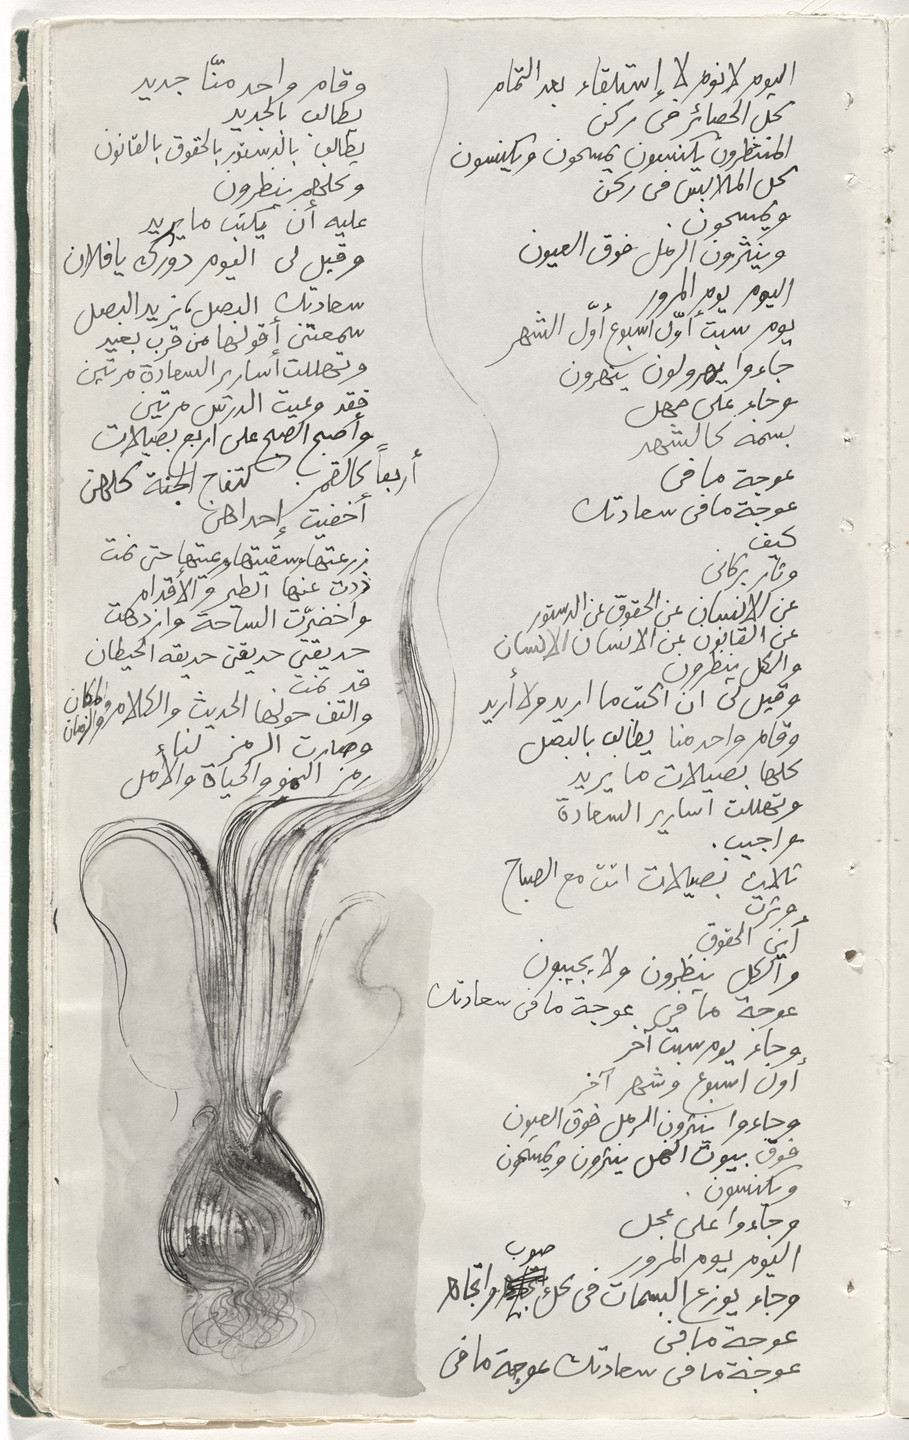 اليوم لا نوم لا إستلقاء بعد التمام
كل الحصائر في ركن
المنتظرون يكنسون يمسحون ويكنسون
كل الملابس في ركن
ويمسحون .
وينثرون الرمل فوق العيون
اليوم يوم المرور
يوم سبت أوّل اسبوع أوّل الشهر
جاءوا يهرولون ينهرون
وجاء على مهل
بسمة كالشهد
عوجة مافى
عوجة مافى سعادتك
كيف
وثار بركانى
عن الإنسان عن الحقوق عن الدستور
عن القانون عن الانسان الإنسان
والكل ينظرون
وقيل لى ان اكتب ما اريد ولا أريد
وقام واحد منا يطالب بالبصل
كلها بصيلات ما يريد
وتهللت اسارير السعادة
واجيب .
ثلاث بصيلات اتت مع الصباح
وثرت
أين الحقوق
والكل ينظرون ولا يجيبون
عوجة مافي عوجة مافى سعادتك
وجاء يوم سبت آخر
أول اسبوع وشهر آخر
وجاءوا ينثرون الرمل فوق العيون
فوق بيوت النمل ينثرون ويمسحون
ويكنسون .
وجاءوا على عجل
اليوم يوم المرور
وجاء يوزع البسمات فى كل صوب واتجاه
عوجة مافى
عوجة مافى سعادتك عوجة مافى
وقام واحد منّا جديد
يطالب بالجديد
يطالب بالدستور بالحقوق بالقانون
وكلهم ينظرون
عليه أن يكتب ما يريد
وقيل لى اليوم دورك يا فلان
سعادتك البصل، نريد البصل
سمعتنى أقولها من قرب بعيد
وتهللت أسارير السعادة مرتين
فقد وعيت الدرس مرتين
وأصبح الصبح على اربع بصيلات
أربعاً كالقمر كتفاح الجنة كلهن
أخفيت إحداهن
زرعتها وسقيتها ورعيتها حتى نمت
ذدت عنها الطير والأقدام
واخضرّت الساحة وازدهت
حديقتي حديقتى حديقه الحيطان
قد نمت
والتف حولها الحديث والكلام والمكان والزمان
وصارت الرمز لنا
رمز النمو والحياة والأمل